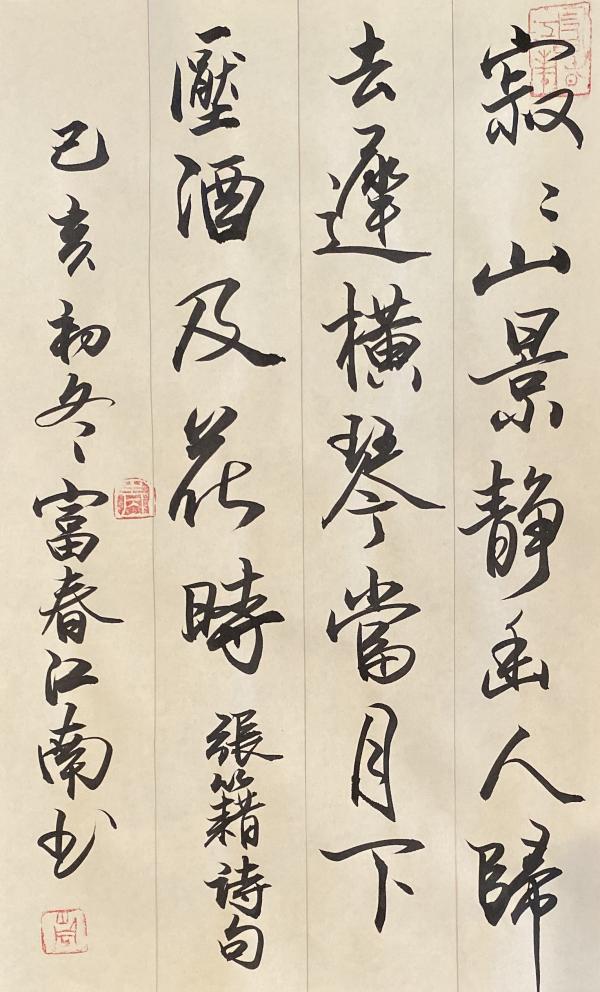 寂〻山景静幽人歸
去遲橫琴當月下
壓酒及花時 張籍诗句
己亥初冬〻富春江南书